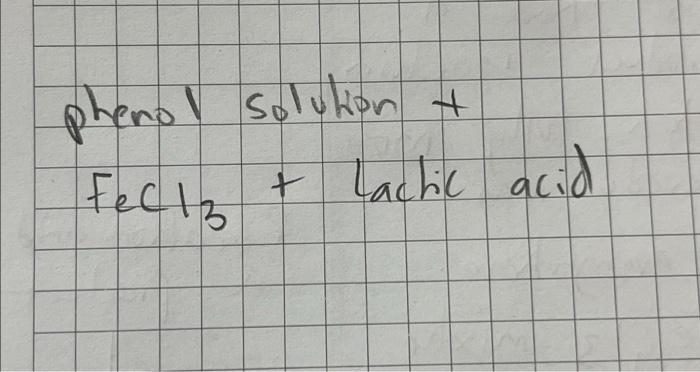 phenol solution +
FeCl3 + Lactic acid